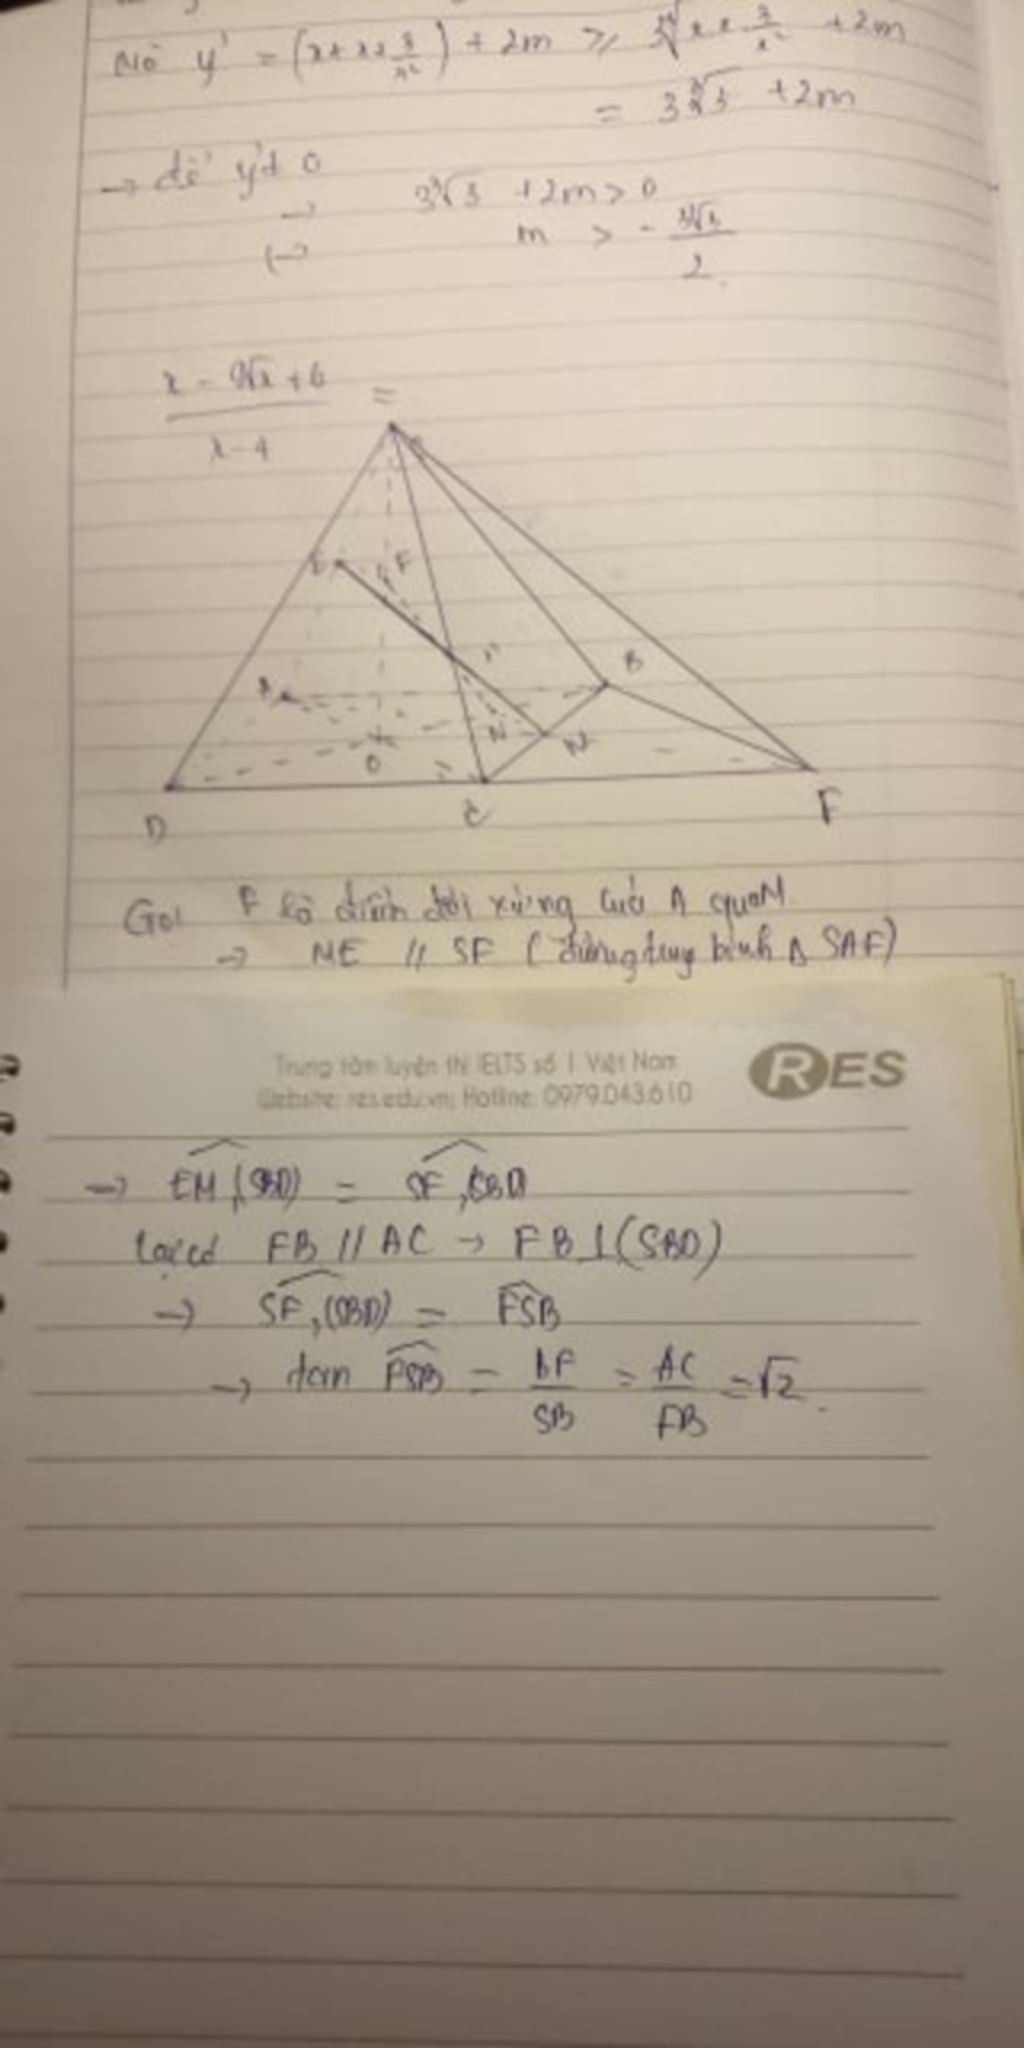 y' = (x + x + 3/x²) + 2m ≥ 3∛x x 3/x² + 2m
= 3∛3 + 2m
→ để y' 0
→ 3∛3 + 2m > 0
(→ m > - 3∛3/2
x - 9√x + 6 / x - 4 =
E F
A B
N N
O
D C F
Gọi F là điểm đối xứng của A qua M
→ ME // SF (đường trung bình Δ SAF)
Trung tâm luyện thi IELTS số 1 Việt Nam
RES
Website: res.edu.vn; Hotline: 0979.043.610
→ EM,(SBD) = SF,(SBD)
Lại có FB // AC → FB ⊥ (SBD)
→ SF,(SBD) = FSB
→ tan FSB = BF/SB = AC/FB = √2.